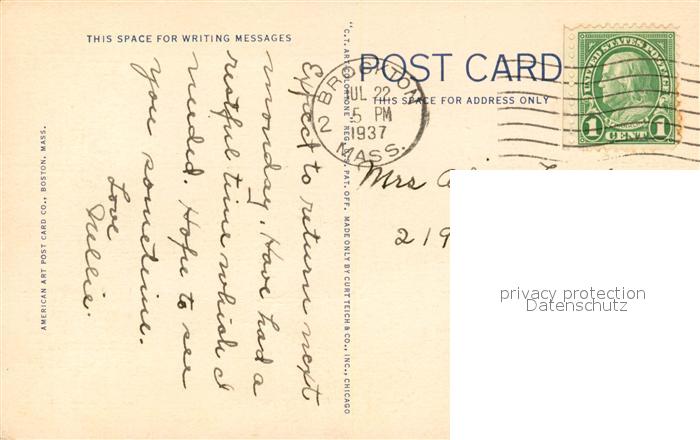 THIS SPACE FOR WRITING MESSAGES
Expect to return next
monday. Have had a
restful time which I
needed. Hope to see
you sometime.
Love
Nellie.
AMERICAN ART POST CARD CO., BOSTON, MASS.
"C.T. ART-COLORTONE" REG. U.S. PAT. OFF. MADE ONLY BY CURT TEICH & CO., INC., CHICAGO
POST CARD
THIS SPACE FOR ADDRESS ONLY
BROCKTON
JUL 22
5 PM
1937
2 MASS.
UNITED STATES POSTAGE
1 CENT 1
Mrs
219
privacy protection
Datenschutz